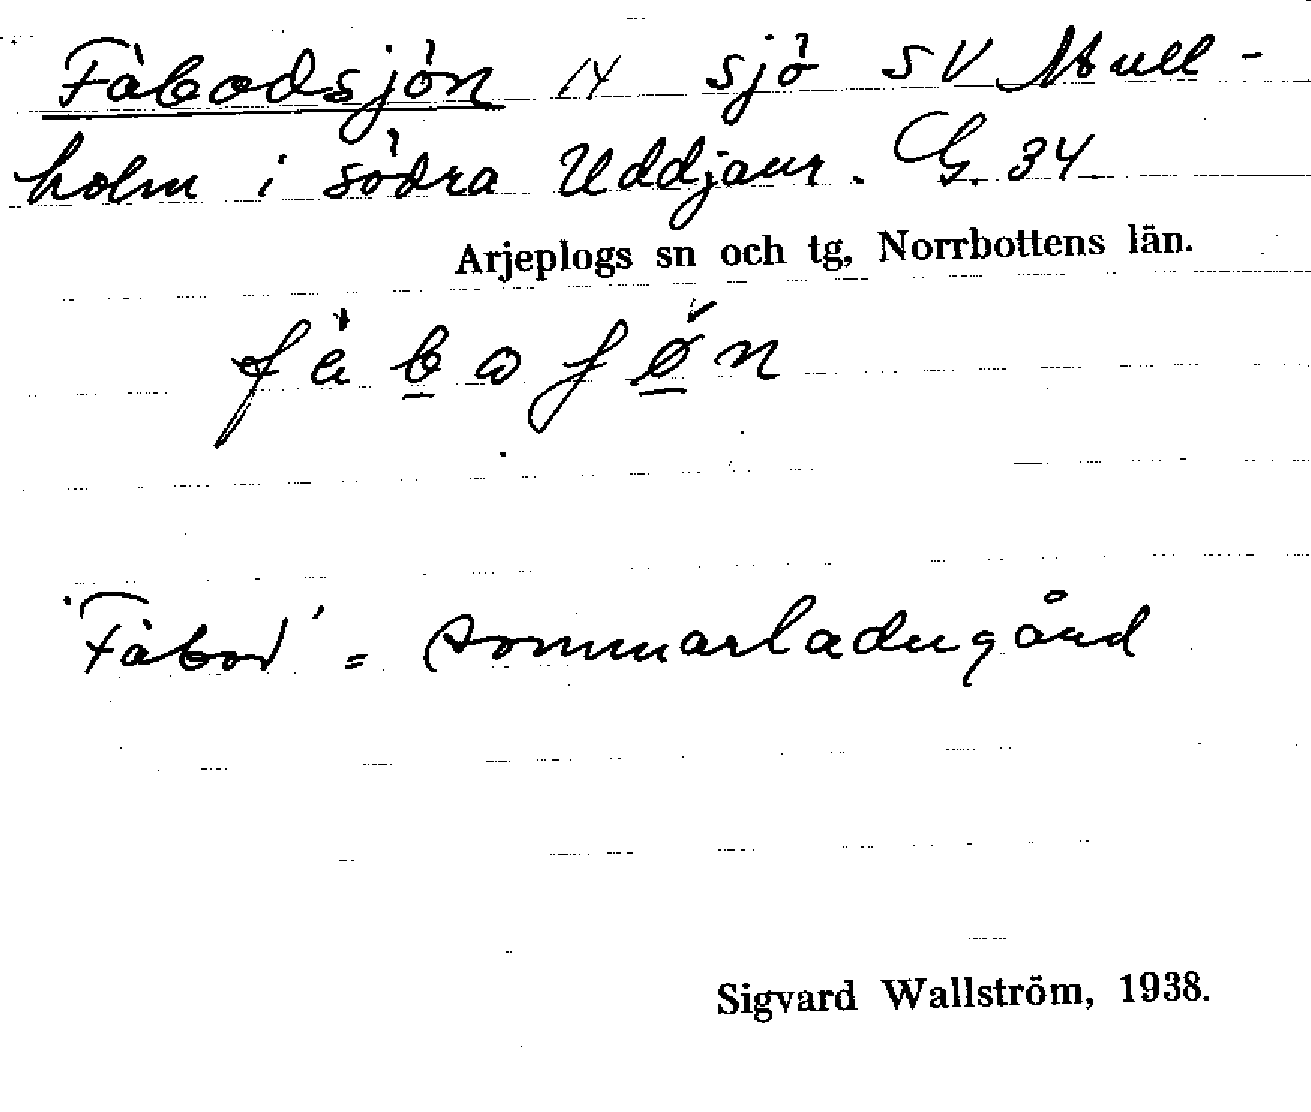 Fäbodsjön 14 sjö SV Mull-
holm i södra Uddjaur. G. 34
Arjeplogs sn och tg, Norrbottens län.
'Fäbod' = sommarladugård
Sigvard Wallström, 1938.